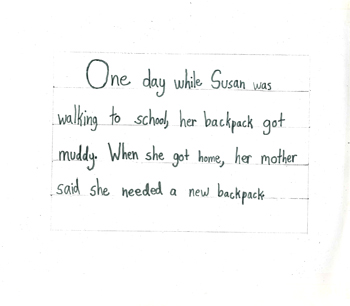 One day while Susan was
walking to school, her backpack got
muddy. When she got home, her mother
said she needed a new backpack